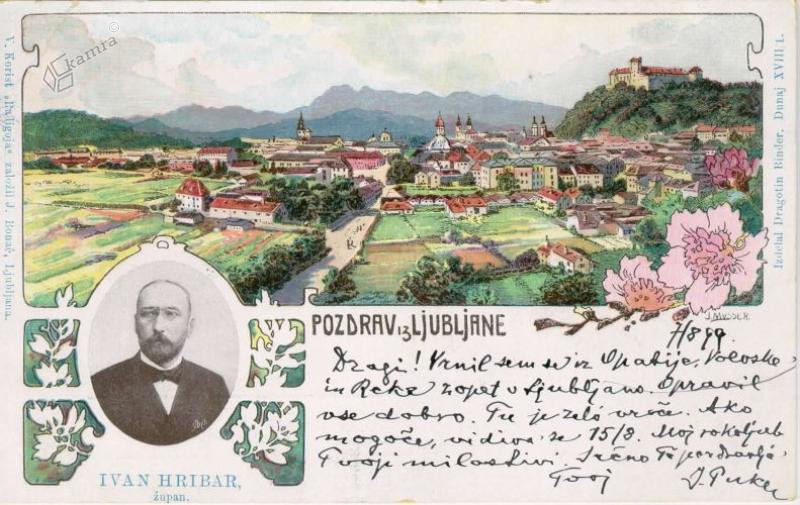 kamra
V. Korist „Radigoja“ založil J. Bonač, Ljubljana.
Izdelal Dragotin Binder, Dunaj XVIII/1.
J. MUSSER.
POZDRAV iz LJUBLJANE
7/8 99
Dragi! Vrnil sem se iz Opatije, Voloske
in Reke zopet v Ljubljano. Opravil
vse dobro. Tu je zelo vroče. Ako
mogoče, vidiva se 15/8. Moj rokoljub
Tvoji milostivi. Srčno Te pozdravlja
Tvoj
IVAN HRIBAR,
župan.